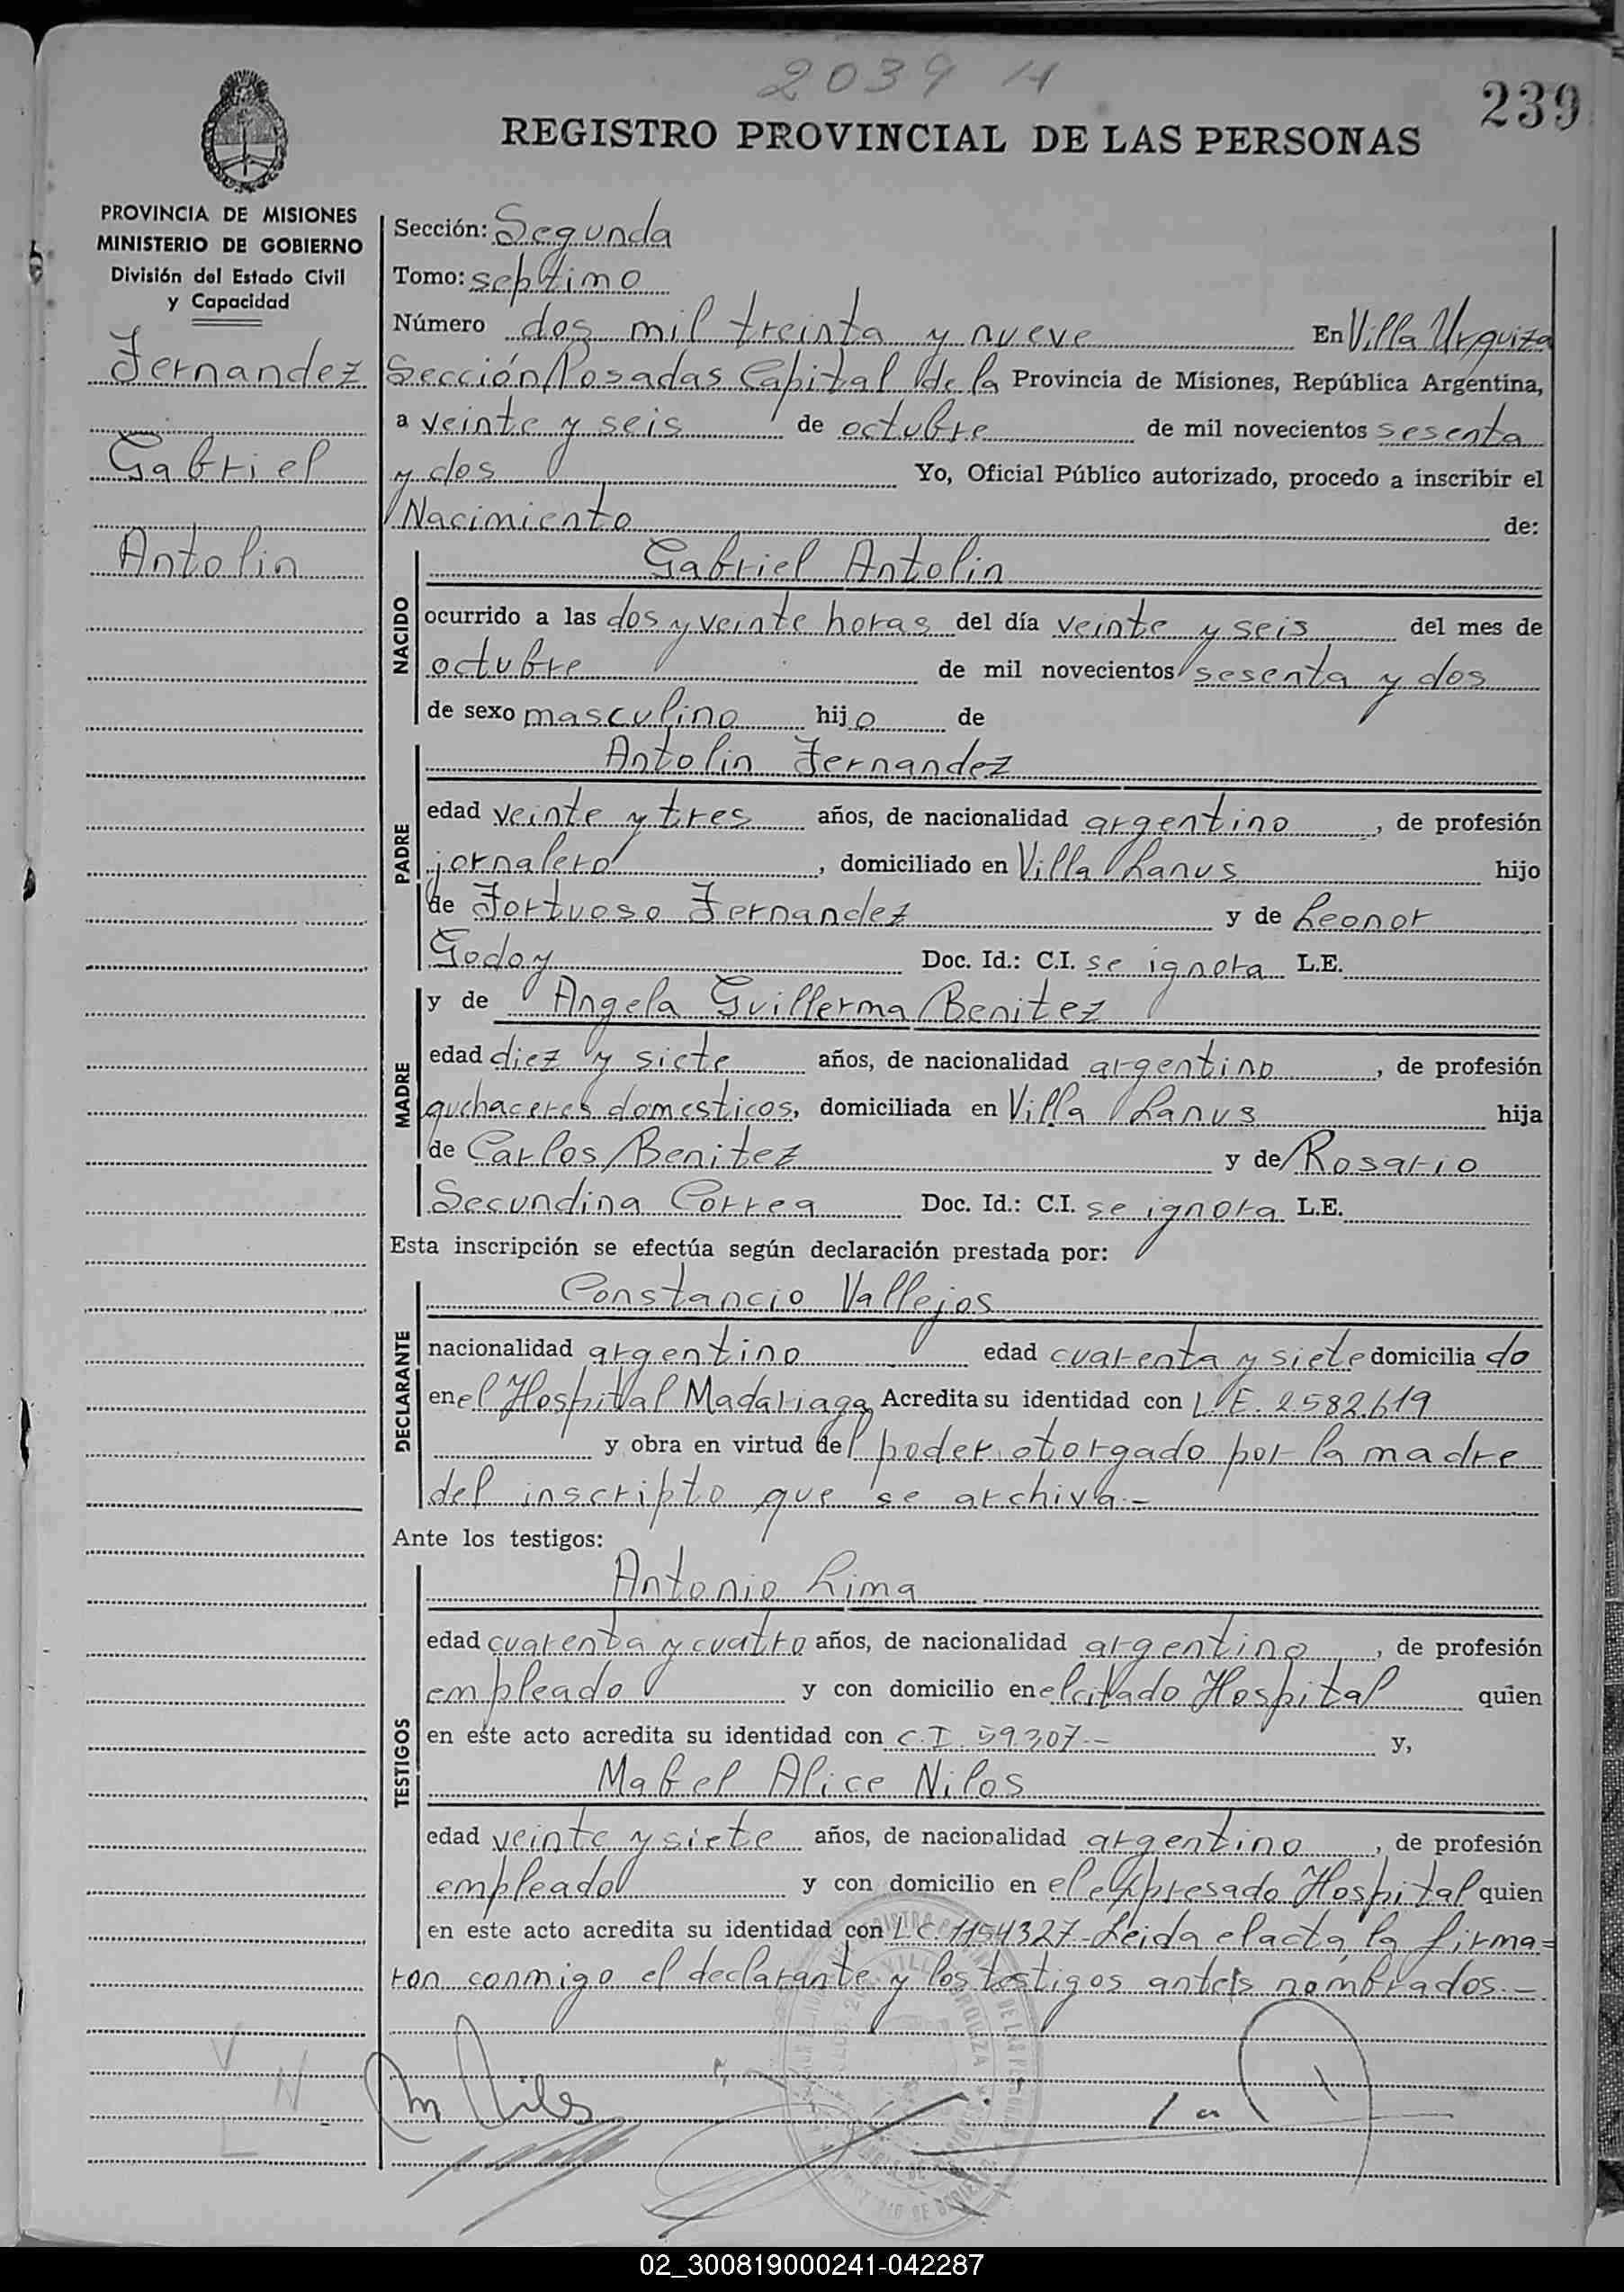 2039 H
239
REGISTRO PROVINCIAL DE LAS PERSONAS
PROVINCIA DE MISIONES
MINISTERIO DE GOBIERNO
División del Estado Civil
y Capacidad
Fernandez
Gabriel
Antolin
Sección: Segunda
Tomo: septimo
Número dos mil treinta y nueve En Villa Urquiza
Sección Posadas Capital de la Provincia de Misiones, República Argentina,
a veinte y seis de octubre de mil novecientos sesenta
y dos Yo, Oficial Público autorizado, procedo a inscribir el
Nacimiento de:
NACIDO
Gabriel Antolin
ocurrido a las dos y veinte horas del día veinte y seis del mes de
octubre de mil novecientos sesenta y dos
de sexo masculino hijo de
PADRE
Antolin Fernandez
edad veinte y tres años, de nacionalidad argentino, de profesión
jornalero, domiciliado en Villa Lanus hijo
de Fortuoso Fernandez y de Leonor
Godoy Doc. Id.: C.I. se ignora L.E.
MADRE
y de Angela Guillerma Benitez
edad diez y siete años, de nacionalidad argentino, de profesión
quehaceres domesticos, domiciliada en Villa Lanus hija
de Carlos Benitez y de Rosario
Secundina Correa Doc. Id.: C.I. se ignora L.E.
Esta inscripción se efectúa según declaración prestada por:
DECLARANTE
Constancio Vallejos
nacionalidad argentino edad cuarenta y siete domiciliado
en el Hospital Madariaga Acredita su identidad con L.E. 2582619
y obra en virtud del poder otorgado por la madre
del inscripto que se archiva.-
Ante los testigos:
TESTIGOS
Antonio Lima
edad cuarenta y cuatro años, de nacionalidad argentino, de profesión
empleado y con domicilio en el citado Hospital quien
en este acto acredita su identidad con C.I. 59.307.- y,
Mabel Alice Nilos
edad veinte y siete años, de nacionalidad argentino, de profesión
empleado y con domicilio en el expresado Hospital quien
en este acto acredita su identidad con L.C. 1154327-Leida el acta, la firma=
ron conmigo el declarante y los testigos antes nombrados.-
02_300819000241-042287